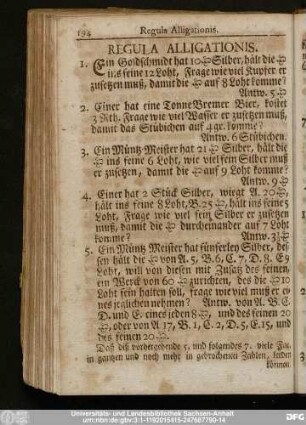 194 Regula Alligationis.
REGULA ALLIGATIONIS.
1. Ein Goldschmidt hat 10 Silber, hält die
ins seine 12 Loht, Frage wie viel Kupfer er
zusetzen muß, damit die auf 8 Loht komme?
Antw. 5
2. Einer hat eine Tonne Bremer Bier, kostet
3 Rth. Frage wie viel Wasser er zusetzen muß,
damit das Stübichen auf 4 gr. komme?
Antw. 6 Stübichen.
3. Ein Müntz-Meister hat 21 Silber, hält die
ins seine 6 Loht, wie viel fein Silber muß
er zusetzen, damit die auf 9 Loht komme?
Antw. 9
4. Einer hat 2 Stück Silber, wiegt A. 20
hält ins seine 8 Loht, B. 25 hält ins seine 5
Loht, Frage wie viel fein Silber er zusetzen
muß, damit die durcheinander auf 7 Loht
komme? Antw.
5. Ein Müntz Meister hat fünferley Silber, des
sen hält die von A. 5, B. 6, C. 7, D. 8. E 9
Loht, will von diesen mit Zusatz des feinen,
ein Werck von 60 zurichten, des die 10
Loht fein halten soll, frage wie viel muß er ei
nes jeglichen nehmen? Antw. von A. B. C.
D. und E. eines jeden 8 und des feinen 20
oder von A 17, B. 1, C. 2, D. 5, E. 15, und
des feinen 20
Daß diß vorhergehende 5. und folgendes 7. viele
in gantzen und noch mehr in gebrochenen Zahlen,
können
Universitäts- und Landesbibliothek Sachsen-Anhalt
urn:nbn:de:gbv:3:1-1192015415-247687790-14